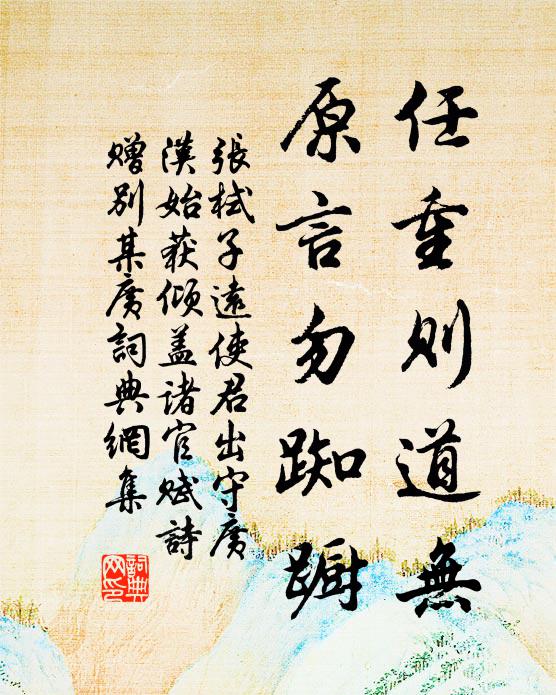 任重則道無
原言勿踟躕
張栻子遠使君出守廣
漢始获倾盖诸官赋詩
赠别某廣詞典網集
詞典
网印